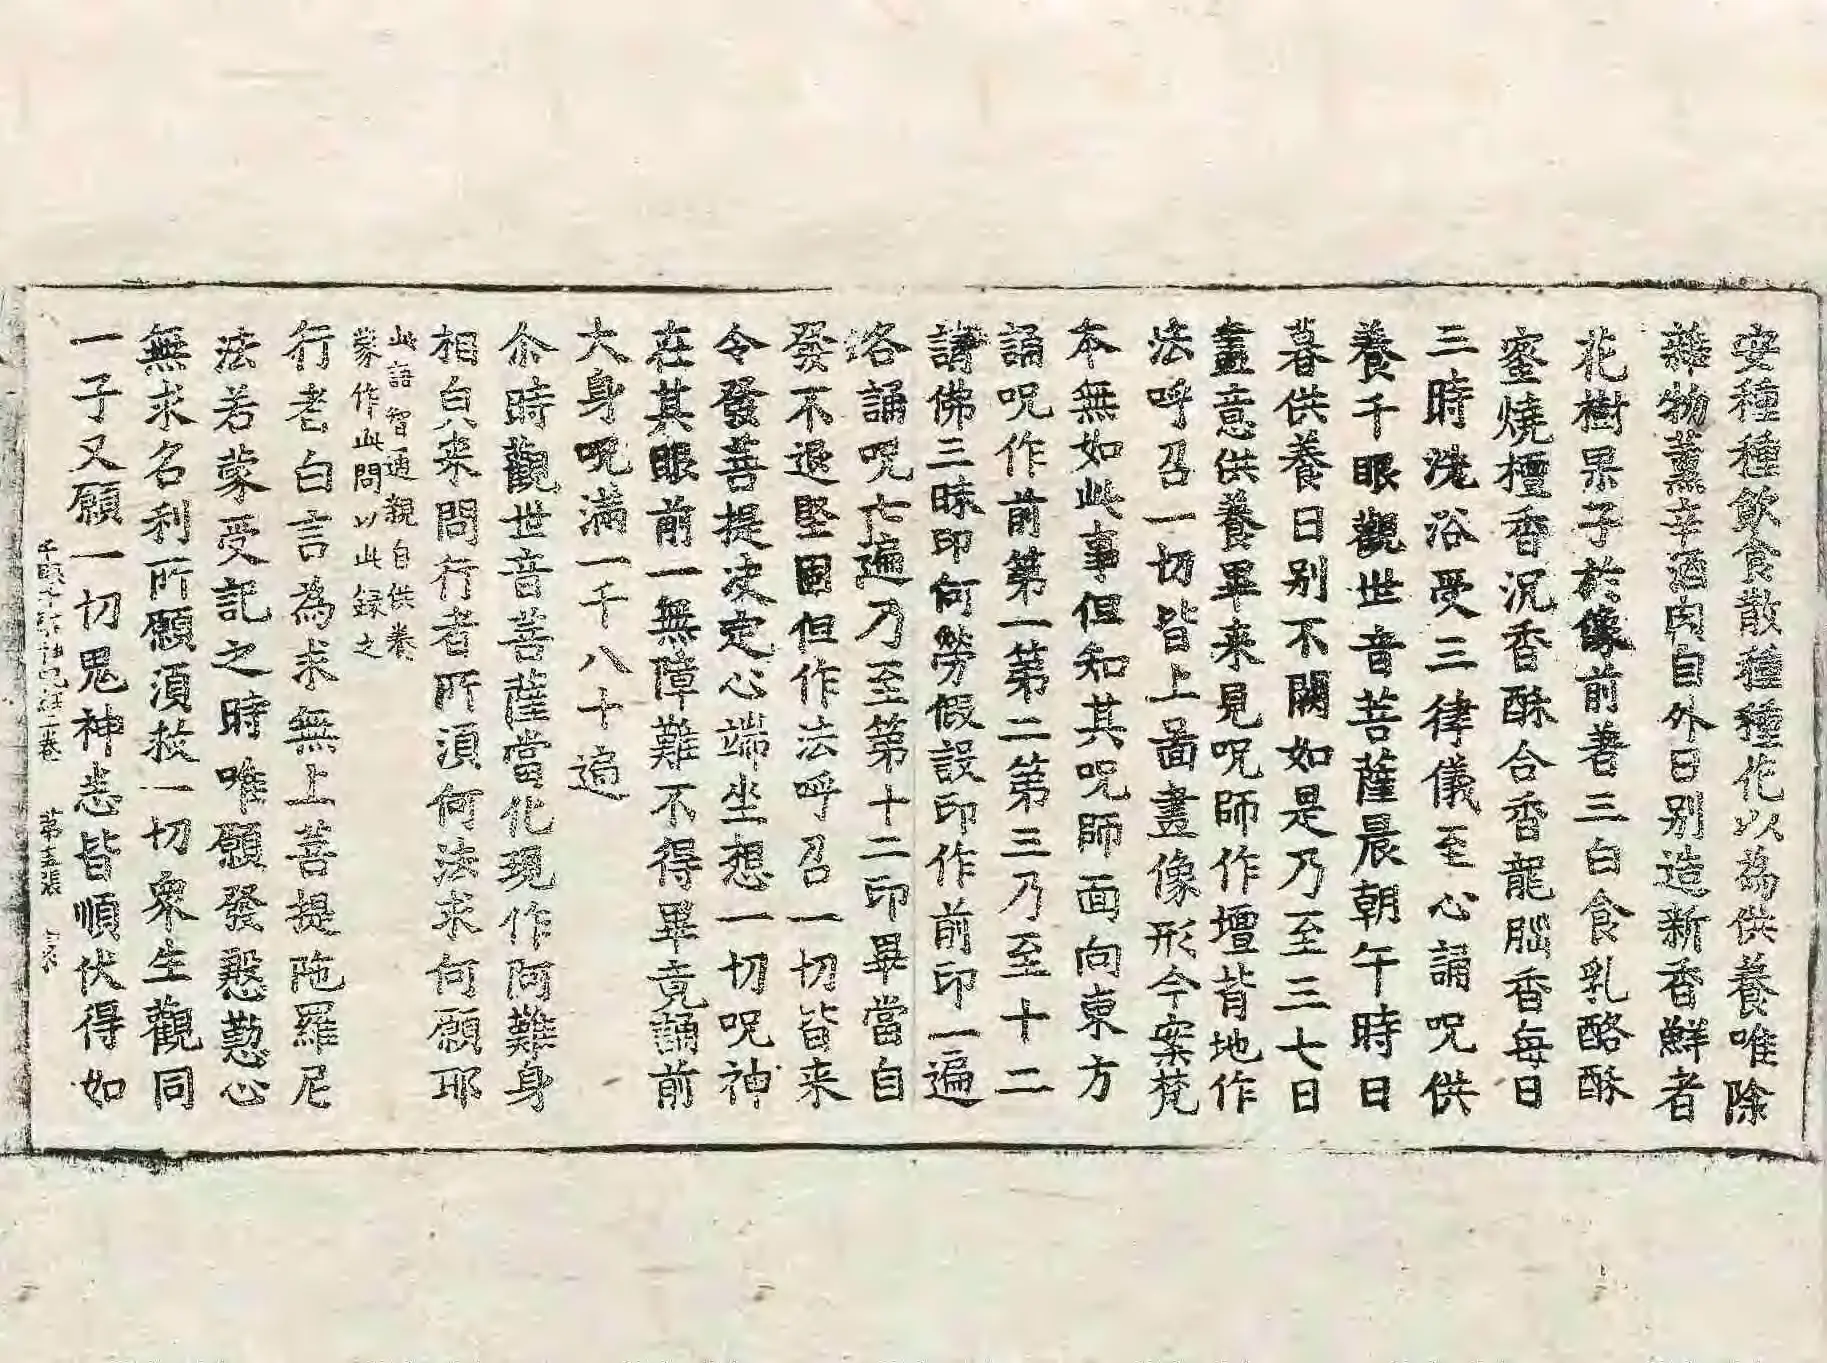 安種種飲食散種種花以為供養唯除
雜物薰辛酒肉自外日別造新香鮮者
花樹果子於像前著三白食乳酪酥
蜜燒檀香沉香酥合香龍腦香每日
三時洗浴受三律儀至心誦呪供
養千眼觀世音菩薩晨朝午時日
暮供養日別不闕如是乃至三七日
畫意供養畢来見呪師作壇背地作
法呼召一切皆上啚畫像形今案梵
本無如此事但知其呪師面向東方
誦呪作前第一第二第三乃至十二
請佛三昧印何勞假設印作前印一遍
各誦呪七遍乃至第十二印畢當自
發不退堅固但作法呼召一切皆来
令發菩提決定心端坐想一切呪神
在其眼前一無障難不得畢竟誦前
大身呪滿一千八十遍
尒時觀世音菩薩當化現作阿難身
相皃来問行者所湏何法求何願耶
此語智通親自供養
蒙作此問以此録之
行者白言為求無上菩提陁羅尼
法若蒙受記之時唯願發慇懃心
無求名利所願湏救一切衆生觀同
一子又願一切鬼神悉皆順伏得如
千眼千 神呪經上卷 第五張